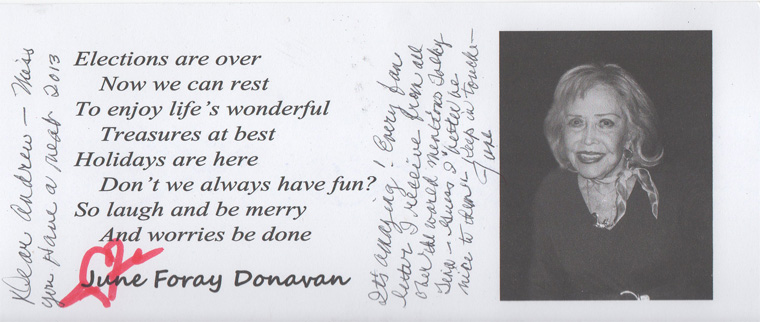 Dear Andrew — Miss
you Have a neat 2013
Elections are over
Now we can rest
To enjoy life's wonderful
Treasures at best
Holidays are here
Don't we always have fun?
So laugh and be merry
And worries be done
June Foray Donavan
It's amazing! Every fan
letter I receive from all
over the world mentions Talky
Tina — Guess I better be
nice to them — Keep in touch —
June